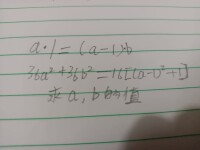 a·1=(a-1)b
36a²+36b²=16[(a-1)²+1]
求a,b的值